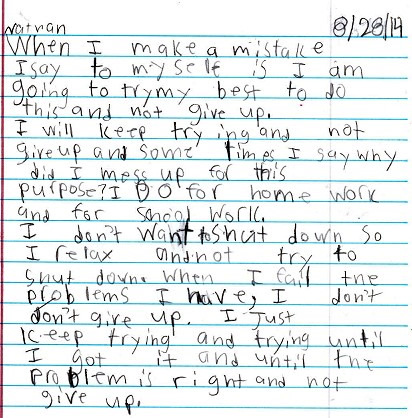 Nathan 8/28/14
When I make a mistake
I say to my self is I am
going to try my best to do
this and not give up.
I will keep try ing and not
give up and some times I say why
did I mess up for this
purpose? I DO for home work
and for school work.
I don't want to shut down so
I relax and not try to
shut down. When I fail the
problems I have, I don't
don't give up. I Just
keep trying and trying until
I got it and until the
problem is right and not
give up.